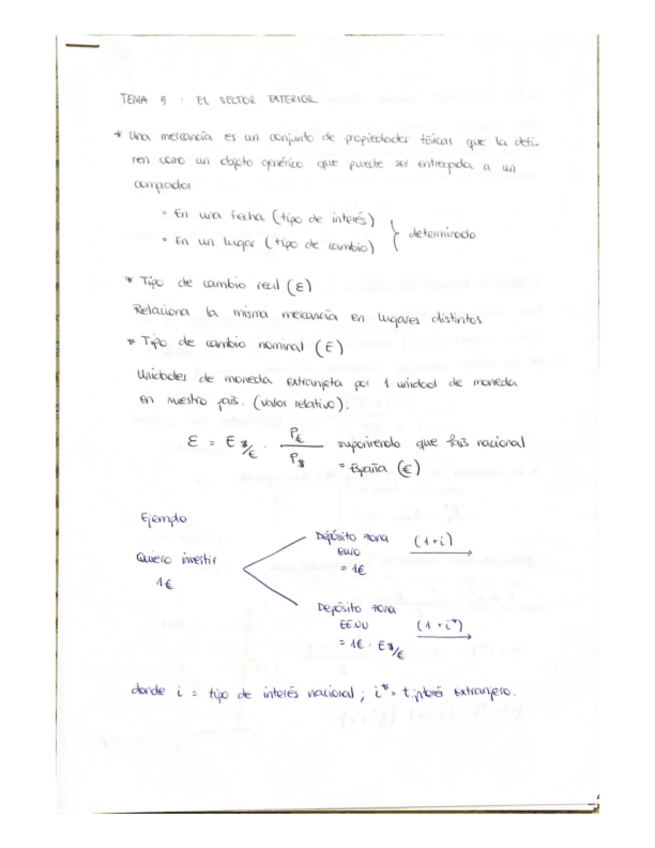 TEMA 5 : EL SECTOR EXTERIOR
* Una mercancía es un conjunto de propiedades físicas que la defi-
nen como un objeto genérico que puede ser entregada a un
comprador
• En una fecha (tipo de interés)
• En un lugar (tipo de cambio) } determinado
* Tipo de cambio real (ε)
Relaciona la misma mercancía en lugares distintos
* Tipo de cambio nominal (E)
Unidades de moneda extranjera por 1 unidad de moneda
en nuestro país. (valor relativo).
ε = E $/€ · P€ / P$ suponiendo que País nacional
= España (€)
Ejemplo
Quiero invertir
1€
Depósito zona (1+i)
euro
= 1€
Depósito zona
EE.UU (1+i*)
= 1€ · E $/€
donde i = tipo de interés nacional ; i* = t. interés extranjero.